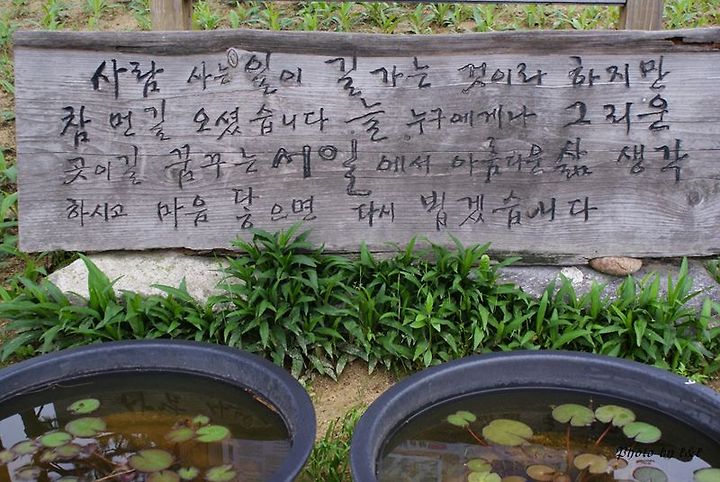 사람 사는 일이 길 가는 것이라 하지만
참 먼길 오셨습니다 늘 누구에게나 그리운
곳이길 꿈꾸는 서일에서 아름다운 삶 생각
하시고 마음 닿으면 다시 뵙겠습니다
Photo by